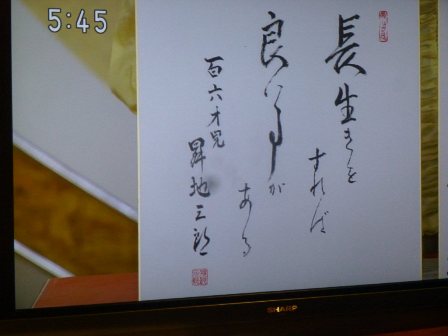 5:45
長生きを
すれば
良い事が
ある
百六才児
昇地三郎
SHARP